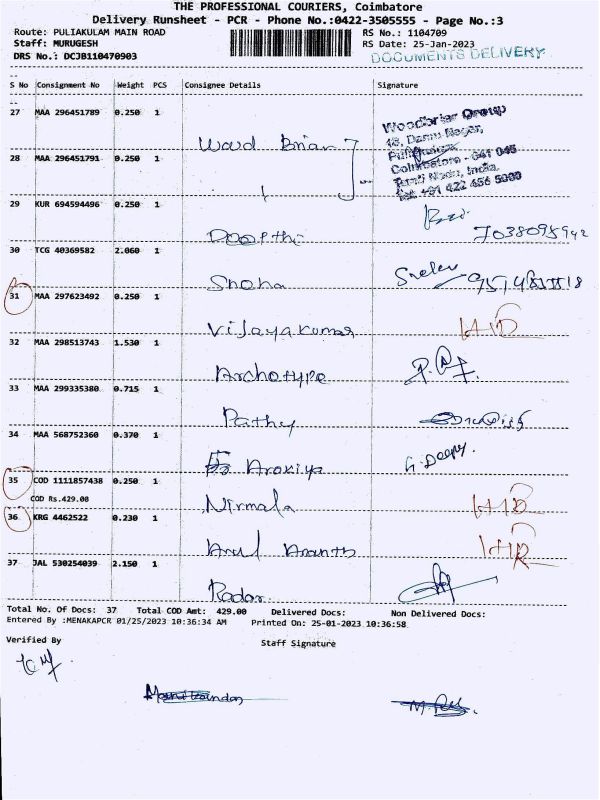 THE PROFESSIONAL COURIERS, Coimbatore
Delivery Runsheet - PCR - Phone No.:0422-3505555 - Page No.:3
Route: PULIAKULAM MAIN ROAD RS No.: 1104709
Staff: MURUGESH RS Date: 25-Jan-2023
DRS No.: DCJB110470903 DOCUMENTS DELIVERY
S No Consignment No Weight PCS Consignee Details Signature
27 MAA 296451789 0.250 1
Woodbriar Group
Ward Brian
Coimbatore - 641 045
28 MAA 296451791 0.250 1
Tamil Nadu, India.
Tel: +91 422 456 5000
29 KUR 694594496 0.250 1
Deepthi 7038098942
30 TCG 40369582 2.060 1
Sneha
31 MAA 297623492 0.250 1
Vijayakumar
32 MAA 298513743 1.530 1
Archotype
33 MAA 299335380 0.715 1
Pathy
34 MAA 568752360 0.370 1
Arokiya G. Deepy.
35 COD 1111857438 0.250 1
COD Rs.429.00
Nirmala
36 KRG 4462522 0.230 1
Arul Ananth
37 JAL 530254039 2.150 1
Radar
Total No. Of Docs: 37 Total COD Amt: 429.00 Delivered Docs: Non Delivered Docs:
Entered By :MENAKAPCR 01/25/2023 10:36:34 AM Printed On: 25-01-2023 10:36:58
Verified By Staff Signature